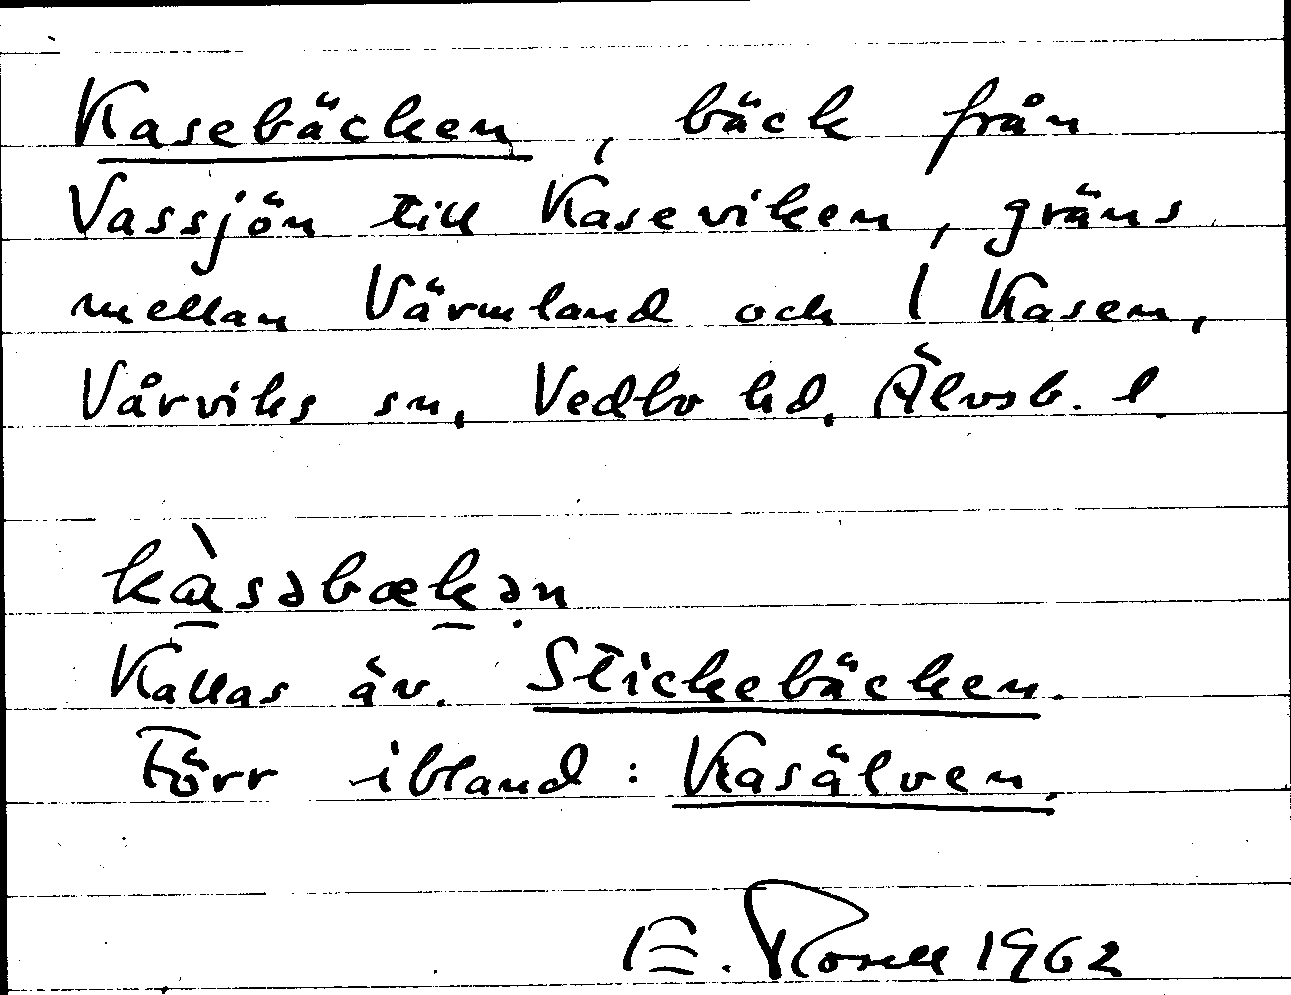 Kasebäcken, bäck från
Vassjön till Kaseviken, gräns
mellan Värmland och l Kasen,
Vårviks sn, Vedbo hd, Älvsb. l.
kàsəbækən
Kallas äv. Stickebäcken.
Förr ibland: Kasälven.
E. Rosell 1962